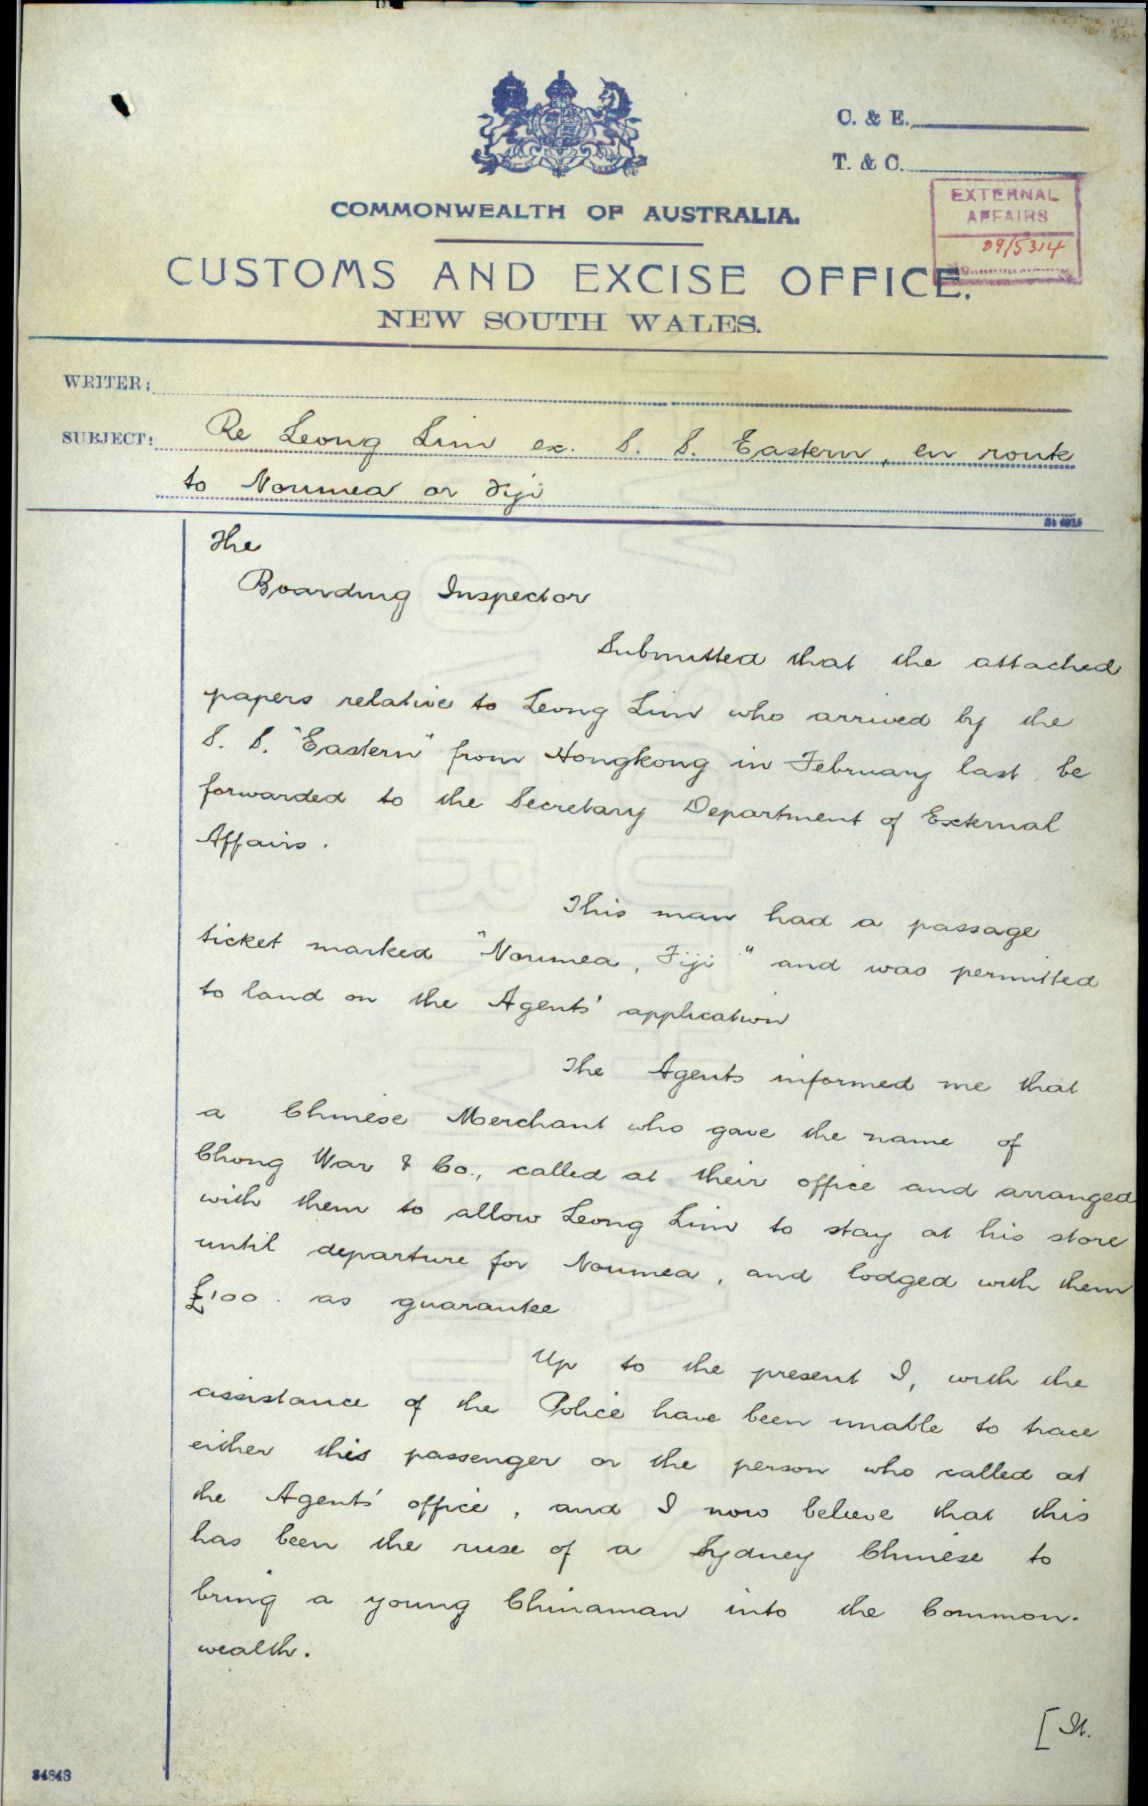 C. & E.
T. & C.
EXTERNAL
AFFAIRS
09/5314
COMMONWEALTH OF AUSTRALIA.
CUSTOMS AND EXCISE OFFICE.
NEW SOUTH WALES.
WRITER:
SUBJECT: Re Leong Lim ex. S. S. Eastern, en route
to Noumea or Fiji
The
Boarding Inspector
Submitted that the attached
papers relative to Leong Lim who arrived by the
S. S. "Eastern" from Hongkong in February last be
forwarded to the Secretary Department of External
Affairs.
This man had a passage
ticket marked "Noumea, Fiji" and was permitted
to land on the Agents' application
The Agents informed me that
a Chinese Merchant who gave the name of
Chong War & Co., called at their office and arranged
with them to allow Leong Lim to stay at his store
until departure for Noumea, and lodged with them
£100. as guarantee
Up to the present I, with the
assistance of the Police have been unable to trace
either this passenger or the person who called at
the Agents' office, and I now believe that this
has been the ruse of a Sydney Chinese to
bring a young Chinaman into the Common-
wealth.
[It.